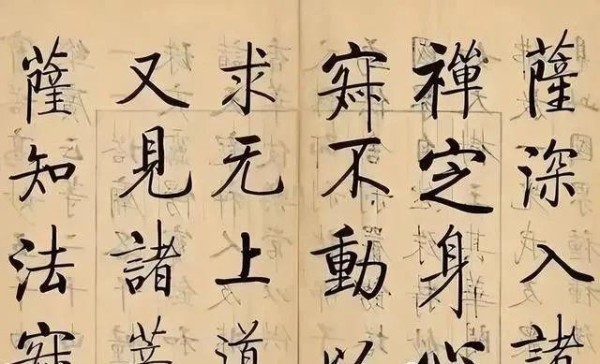 薩深入諸
禪㝎身心
寂不動以
求无上道
又見諸菩
薩知法寂